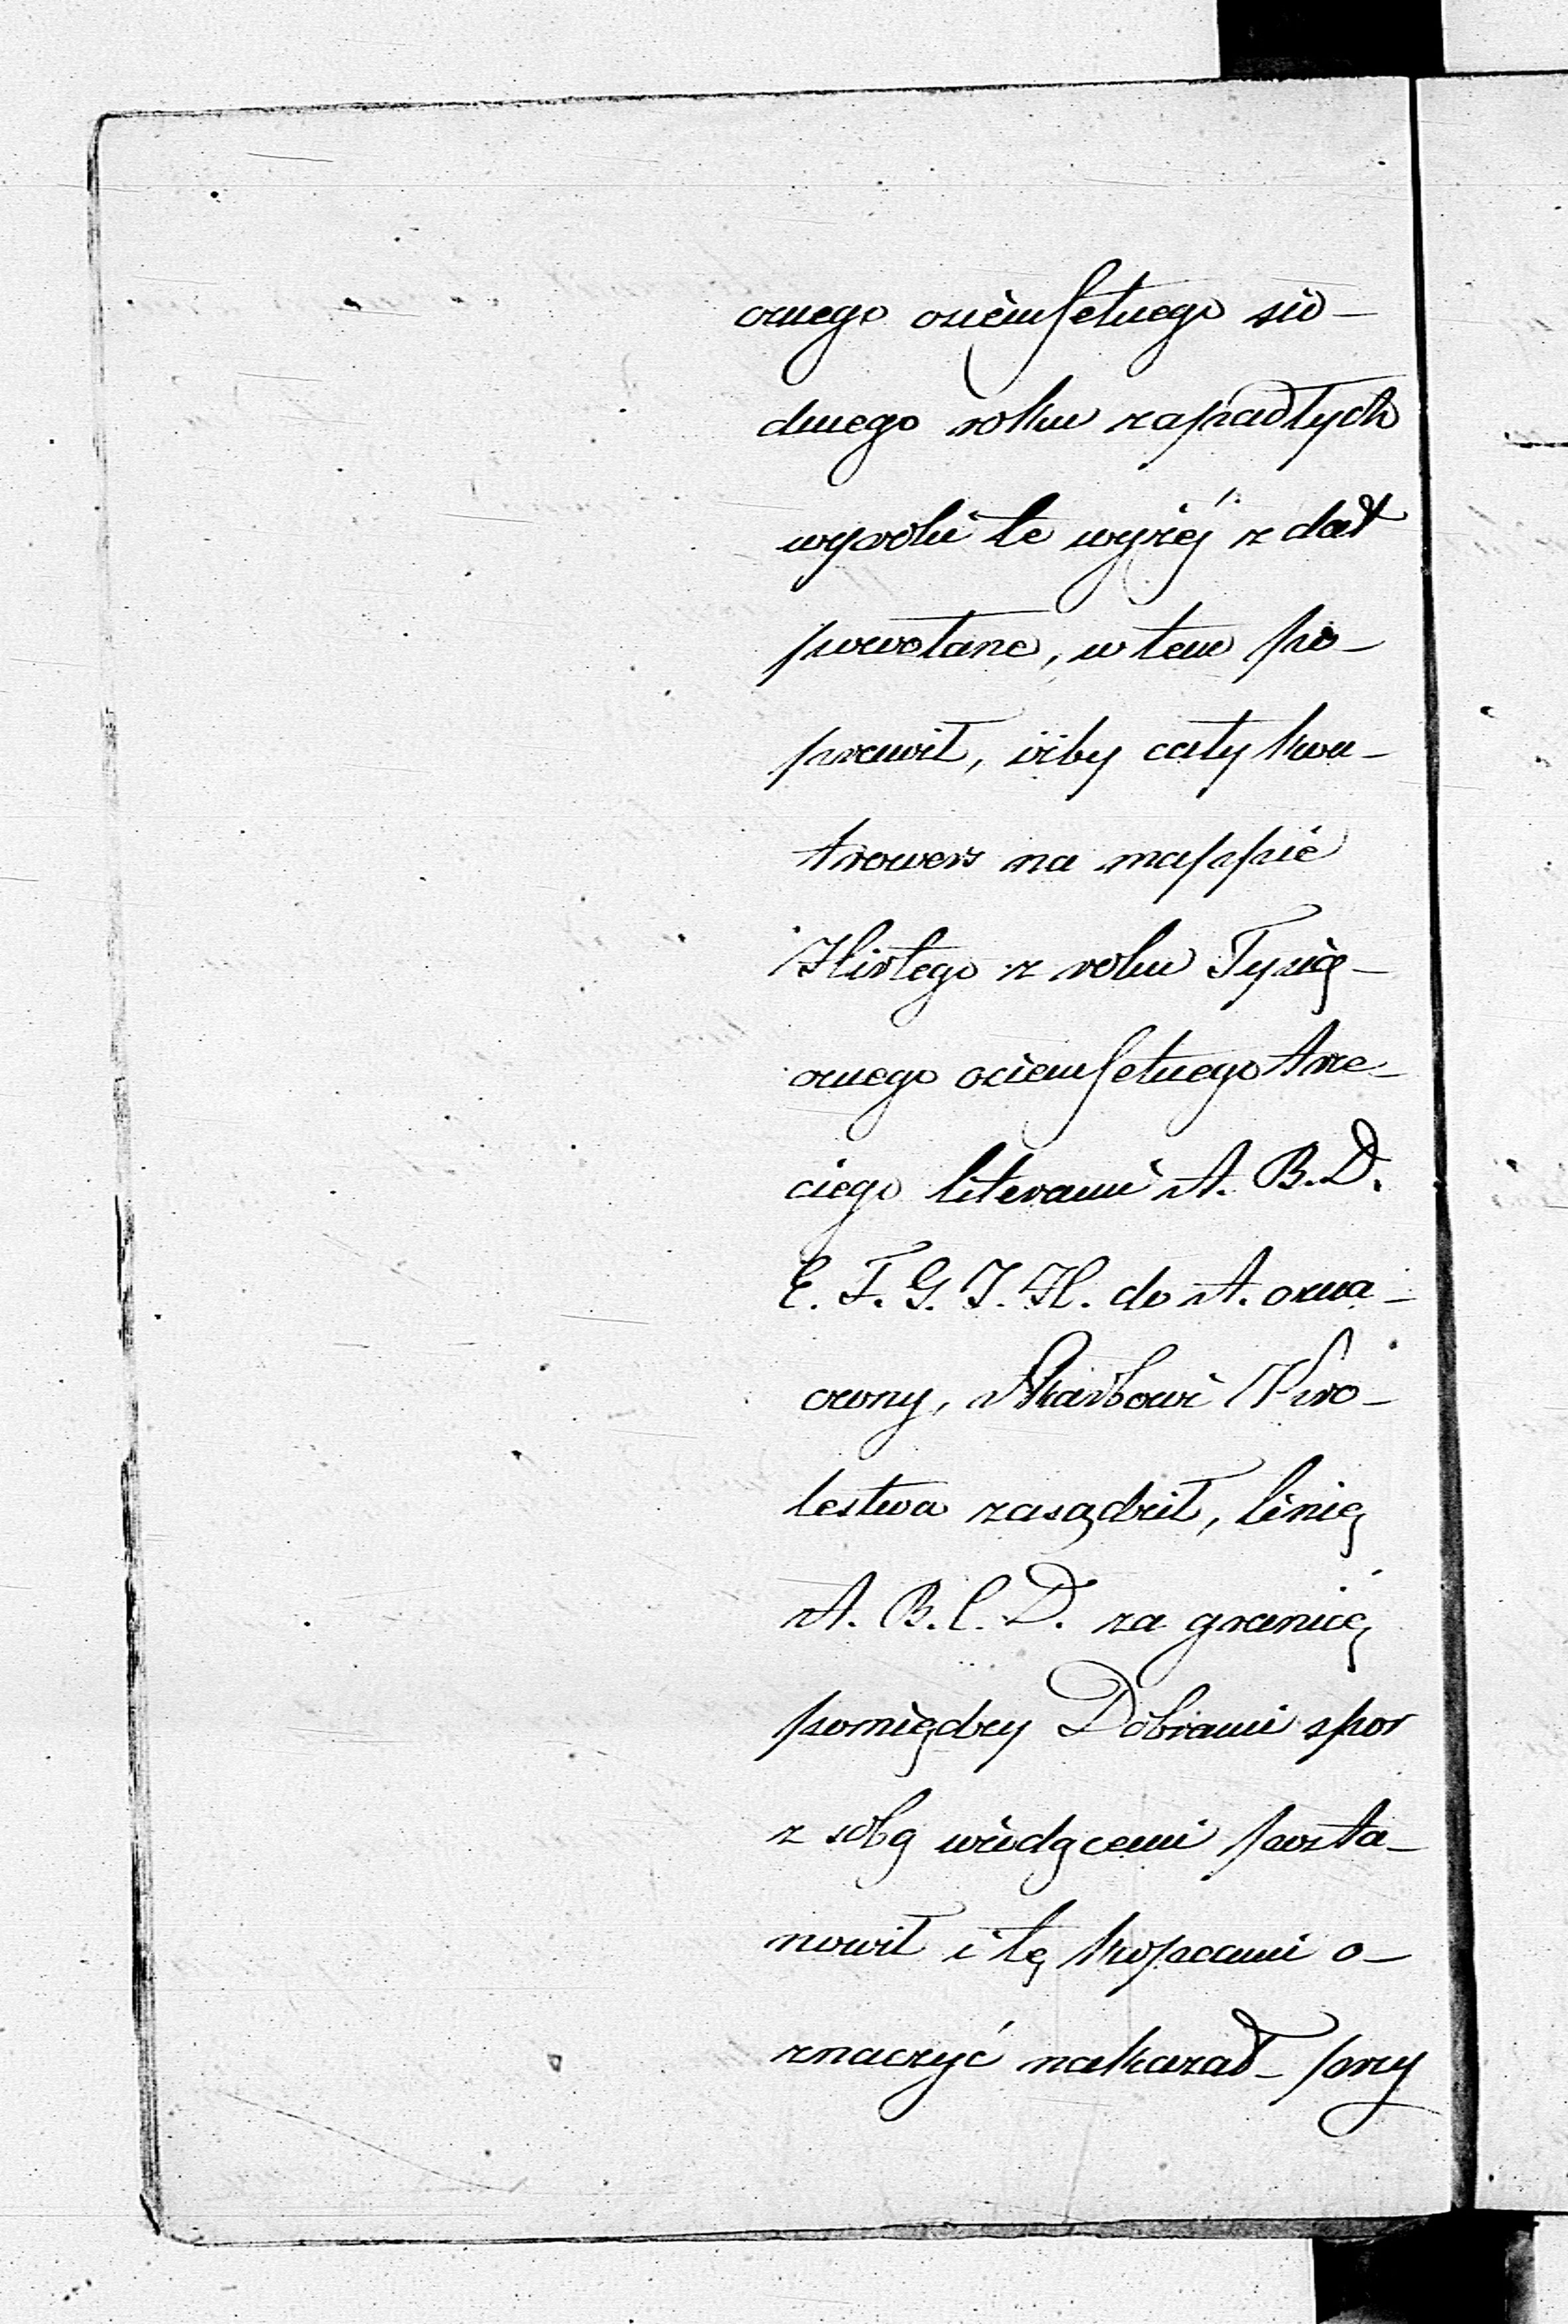 cznego ośmsetnego sió-
dmego roku zapadłych
wyroki te wyżéj z dat
powołane, w tem po-
prawił, iżby cały kon-
trowers na mappie
Hirlego z roku Tysią-
cznego ośmsetnego trze-
ciego literami A. B. D.
E. F. G. J. H. do A. ozna-
czony, Skarbowi Kró-
lestwa zasądził, linię
A. B. C. D. za granicę
pomiędzy Dobrami spor
z sobą wiodącemi posta-
nowił i tę kopcami o-
znaczyć nakazał - przy